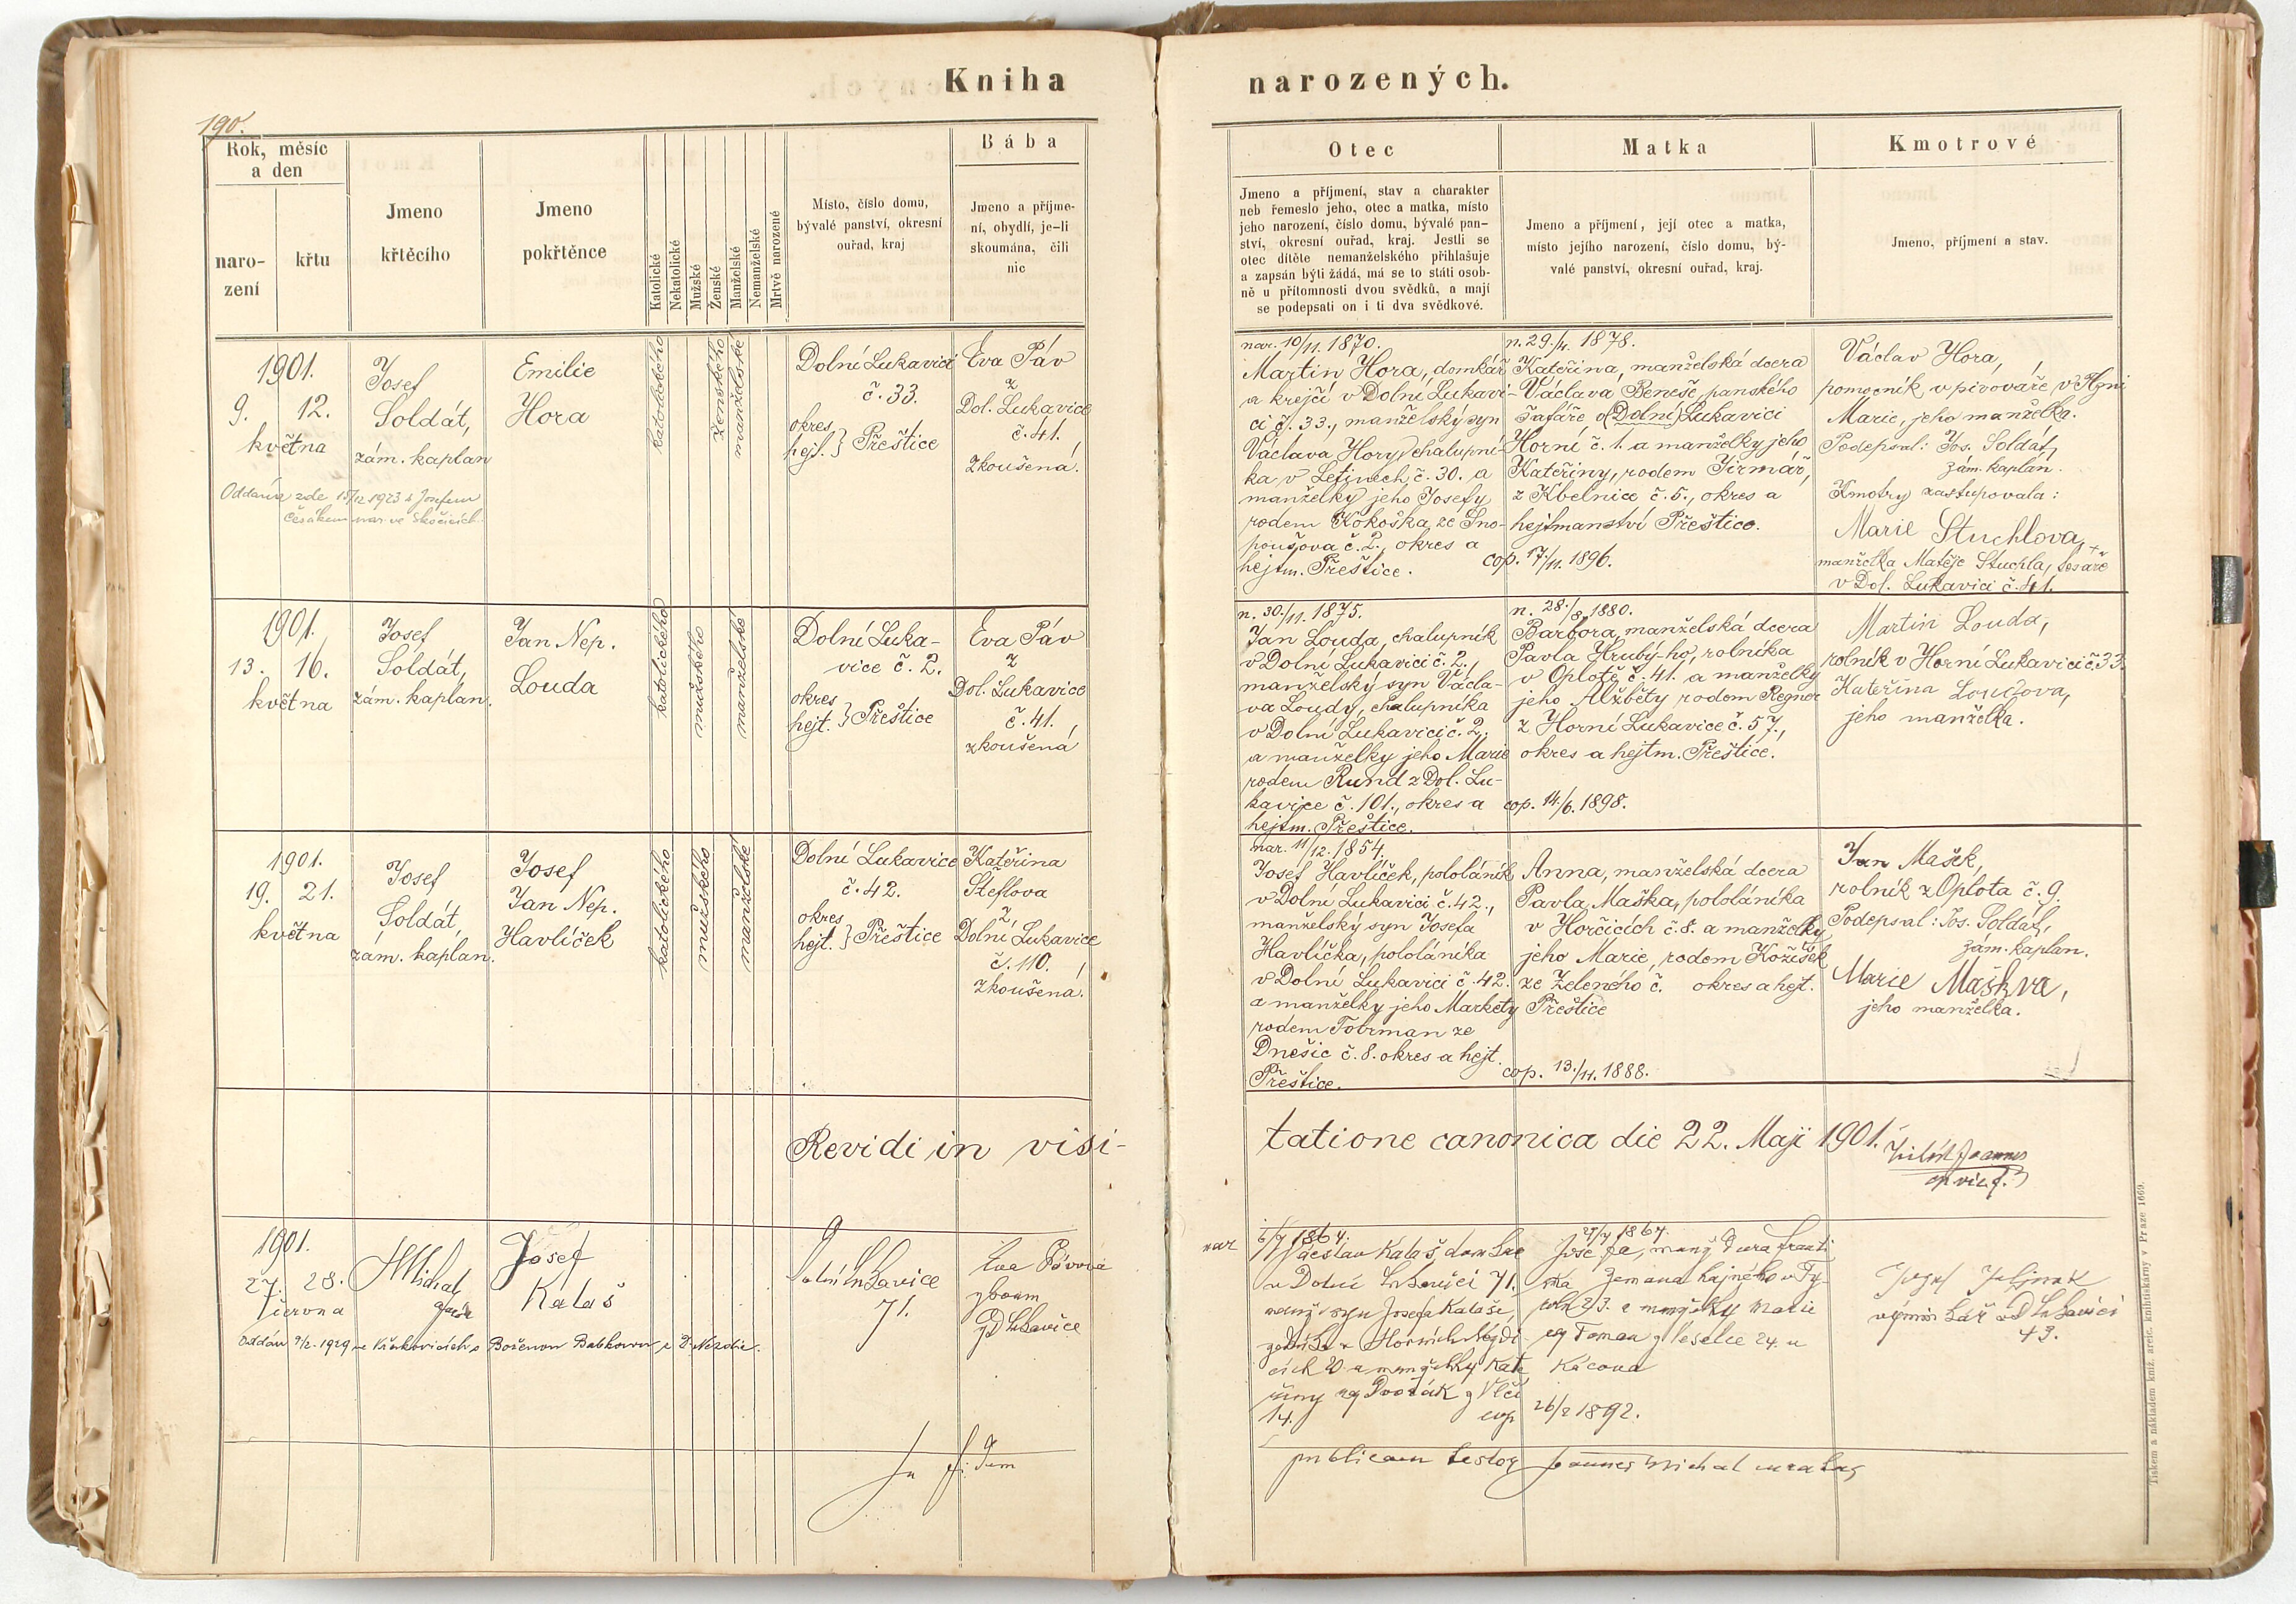 Kniha narozených.
190.
Rok, měsíc
a den
naro-
zení
křtu
Jmeno
křtěcího
Jmeno
pokřtěnce
Katolické
Nekatolické
Mužské
Ženské
Manželské
Nemanželské
Mrtvě narozené
Místo, číslo domu,
bývalé panství, okresní
ouřad, kraj
Bába
Jmeno a příjme-
ní, obydlí, je-li
skoumána, čili
nic
Otec
Jmeno a příjmení, stav a charakter
neb řemeslo jeho, otec a matka, místo
jeho narození, číslo domu, bývalé pan-
ství, okresní ouřad, kraj. Jestli se
otec dítěte nemanželského přihlašuje
a zapsán býti žádá, má se to státi osob-
ně u přítomnosti dvou svědků, a mají
se podepsati on i ti dva svědkové.
Matka
Jmeno a příjmení, její otec a matka,
místo jejího narození, číslo domu, bý-
valé panství, okresní ouřad, kraj.
Kmotrové
Jmeno, příjmení a stav.
1901.
9. 12.
května
Josef
Soldát,
zám. kaplan
Emilie
Hora
katolického
ženského
manželské
Dolní Lukavici
č. 33.
okres
hejt. } Přeštice
Eva Páv
z
Dol. Lukavice
č. 41.
zkoušená.
Oddána zde 15/12 1923 s Josefem
Česákem nar. ve Skočicích.
nar. 10/11. 1870.
Martin Hora, domkář
a krejčí v Dolní Lukavi-
ci č. 33., manželský syn
Václava Hory, chalupní-
ka v Letinech č. 30. a
manželky jeho Josefy
rodem Kokoška, ze Sno-
poušova č. 2., okres a
hejtm. Přeštice.
n. 29./4. 1878.
Kateřina, manželská dcera
Václava Beneše, panského
šafáře v (Dolní) Lukavici
Horní č. 1. a manželky jeho
Kateřiny, rodem Jirmář,
z Kbelnice č. 5., okres a
hejtmanství Přeštice.
cop. 17./11. 1896.
Václav Hora,
pomocník v pivováře v
Marie, jeho manželka.
Podepsal: Jos. Soldát,
zám. kaplan.
Kmotry zastupovala:
Marie Stuchlova,
manželka Matěje Stuchla, tesaře
v Dol. Lukavici č. 41.
1901.
13. 16.
května
Josef
Soldát,
zám. kaplan.
Jan Nep.
Louda
katolického
mužského
manželské
Dolní Luka-
vice č. 2.
okres
hejt. } Přeštice
Eva Páv
z
Dol. Lukavice
č. 41.
zkoušená
n. 30./11. 1875.
Jan Louda, chalupník
v Dolní Lukavici č. 2.,
manželský syn Václa-
va Loudy, chalupníka
v Dolní Lukavici č. 2.
a manželky jeho Marie
rodem Rund z Dol. Lu-
kavice č. 101., okres a
hejtm. Přeštice.
n. 28./8. 1880.
Barbora, manželská dcera
Pavla Hrubý-ho, rolníka
v Oplotě č. 41. a manželky
jeho Alžběty rodem Regner
z Horní Lukavice č. 57.,
okres a hejtm. Přeštice.
cop. 14./6. 1898.
Martin Louda,
rolník v Horní Lukavici č. 33.
Kateřina Loudova,
jeho manželka.
1901.
19. 21.
května
Josef
Soldát,
zám. kaplan.
Josef
Jan Nep.
Havlíček
katolického
mužského
manželské
Dolní Lukavice
č. 42.
okres
hejt. } Přeštice
Kateřina
Šteflova
z
Dolní Lukavice
č. 110.
zkoušená.
nar. 11/12. 1854.
Josef Havlíček, pololáník
v Dolní Lukavici č. 42.,
manželský syn Josefa
Havlíčka, pololáníka
v Dolní Lukavici č. 42.
a manželky jeho Markety
rodem Tobrman ze
Dnešic č. 8. okres a hejt.
Přeštice.
Anna, manželská dcera
Pavla Maška, pololáníka
v Horčicích č. 8. a manželky
jeho Marie, rodem Kožíšek
ze Zeleného č. okres a hejt.
Přeštice
cop. 13./11. 1888.
Jan Mašek,
rolník z Oplota č. 9.
Podepsal: Jos. Soldát,
zám. kaplan.
Marie Maškva,
jeho manželka.
Revidi in visi-
tatione canonica die 22. Maji 1901.
1901.
27. 28.
června
Michal
Josef
Kalaš
Dolní Lukavice
71.
Eva Pávová
zkoum
z D Lukavice
Oddán 9/2. 1929 ve Vičkovicích s Boženou Babkovou z D. Nezdic.
nar 6/9 1864.
Václav Kalaš, domkář
v Dolní Lukavici 71.
manž. syn Josefa Kalaše,
14.
29/4 1867.
Josefa, manž dcera Franti
ška Zemana hajného v
a manželky Marie
roz Toman z Veselce 24. u
Kácova
cop 26/2 1892.
Josef
výminkář v D Lukavici
43.
In fidem
publicam testor Joannes Michal
Tiskem a nákladem kníž. arcib. knihtiskárny v Praze 1669.